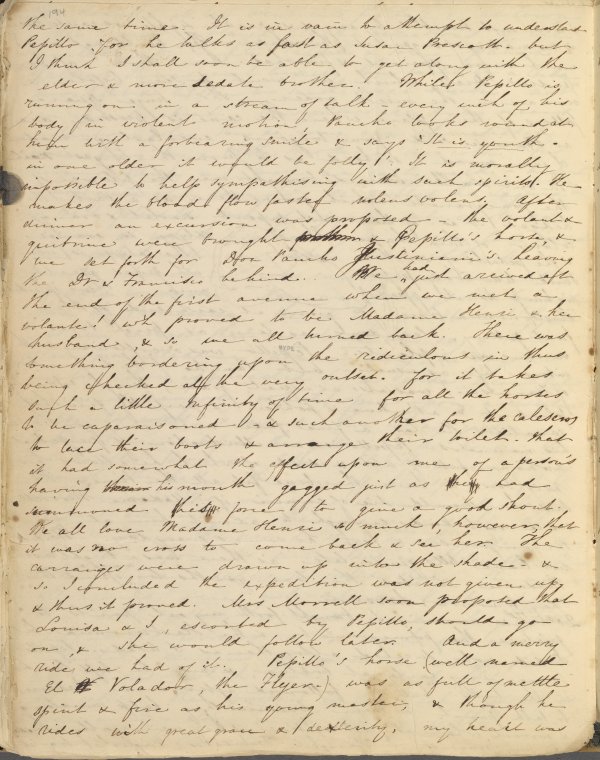 194
the same time. It is in vain to attempt to understand
Pepillo for he talks as fast as Susan Prescott. but
I think I shall soon be able to get along with the
elder & more sedate brother. While Pepillo is
running on in a stream of talk - every inch of his
body in violent motion Pancho looks round at
him with a forbearing smile & says "It is youth -
in one older it would be folly"! It is morally
impossible to help sympathising with such spirits. He
makes the blood flow faster nolens volens. After
dinner an excursion was proposed - the volant &
quitrine were brought & Pepillo's horse, &
we set forth for Don Pancho Justiniani's leaving
the Dr & Francisco behind. We had just arrived at
the end of the first avenue when we met a
volante! wh proved to be Madame Henri & her
husband, & so we all turned back. There was
something bordering upon the ridiculous in thus
being checked at the very outset. For it takes
such a little infinity of time for all the horses
to be caparisoned - & such another for the caleseros
to lace their boots & arrange their toilet. that
it had somewhat the effect upon me of a person's
having his mouth gagged just as had
summoned his force to give a good shout.
We all love Madame Henri so much, however, that
it was no cross to come back & see her. The
carriages were drawn up into the shade - &
so I concluded the expedition was not given up
& thus it proved. Mrs Morrell soon proposed that
Louisa & I, escorted by Pepillo, should go
on, & she would follow later. And a merry
ride we had of it. Pepillo's horse (well named
El Volador, the Flyer.) was as full of mettle
spirit & fire as his young master, & though he
rides with great grace & dexterity, my heart was